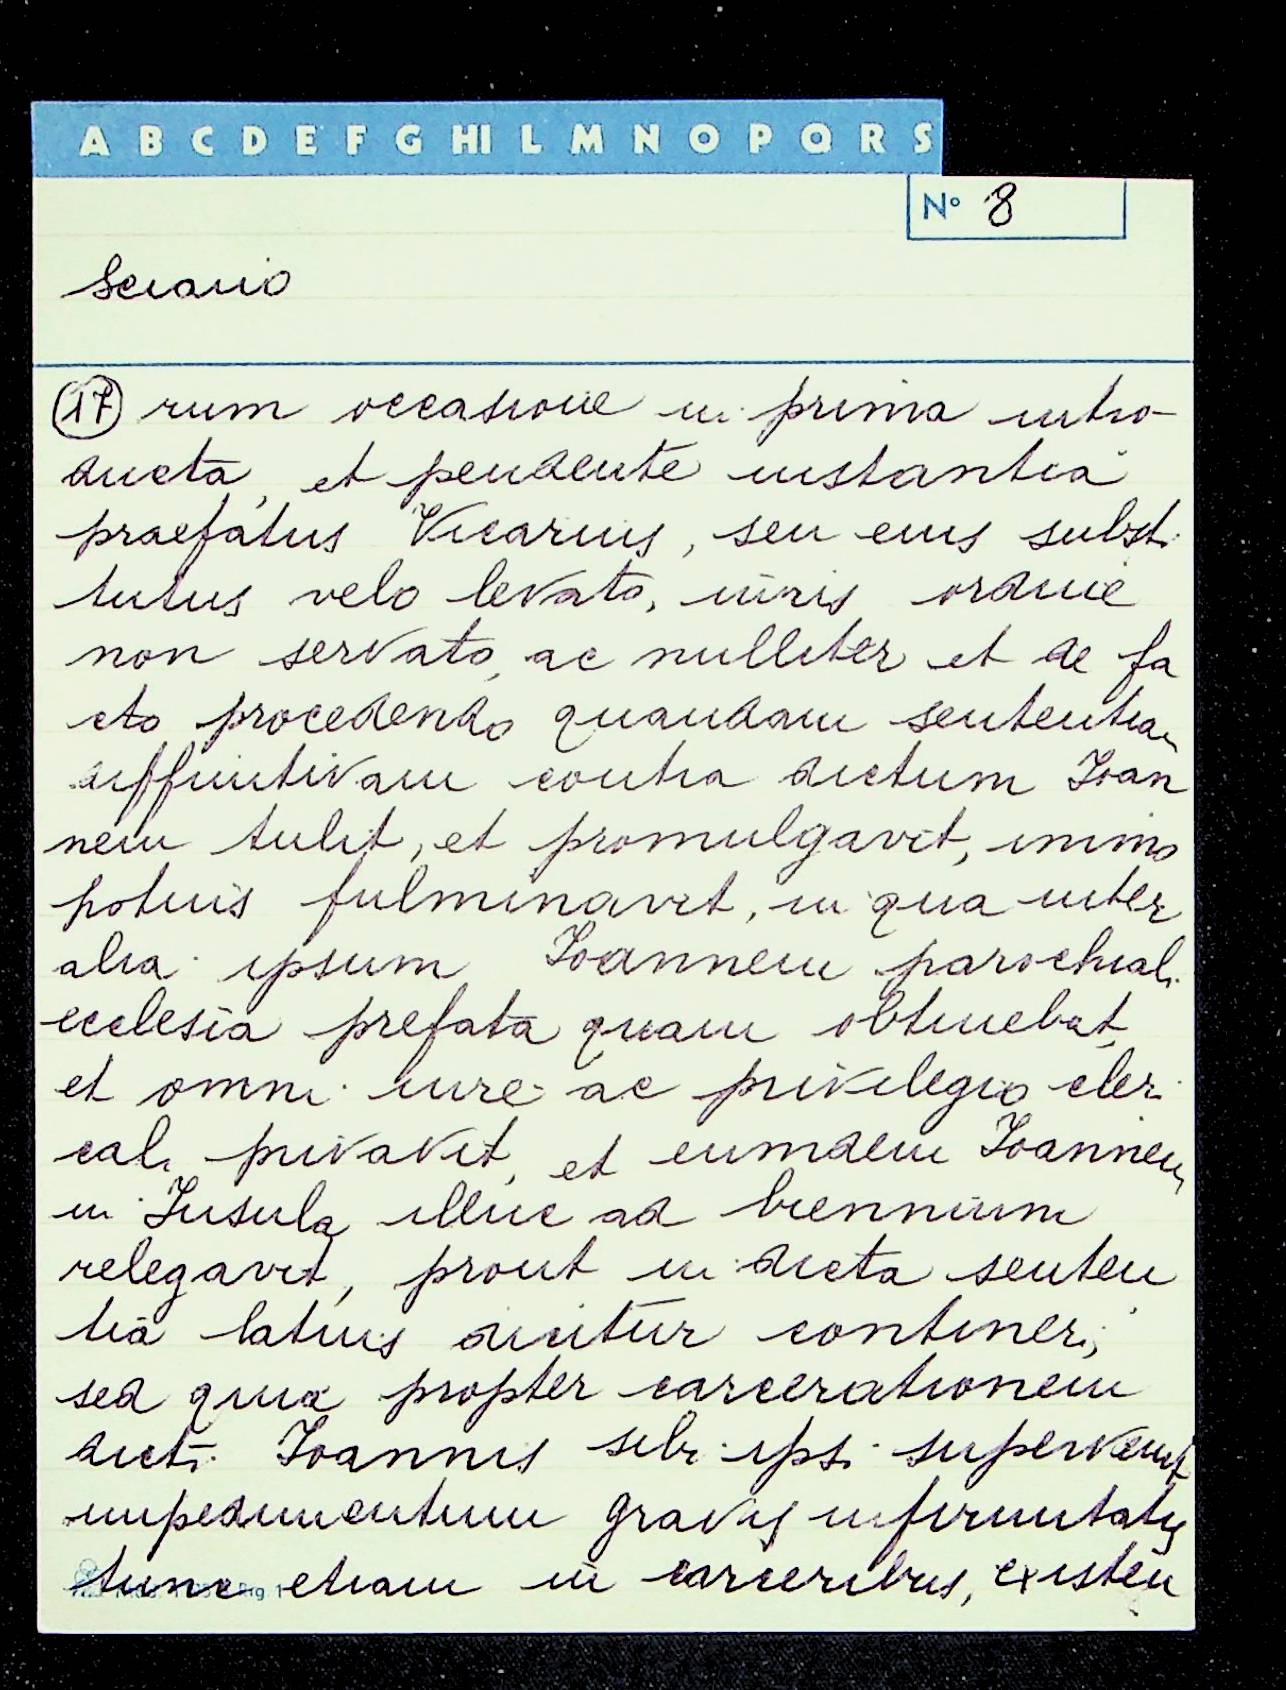 A B C D E F G HI L M N O P Q R S
N° 8
Scianio
(17) rum occasione in prima intro-
ducta, et pendente instantia
praefatus Vicarius, seu eius substi
tutus velo levato, iuris ordine
non servato, ac nulliter et de fa
cto procedendo quandam sententiam
diffinitivam contra dictum Ioan
nem tulit, et promulgavit, immo
potius fulminavit, in qua inter
alia ipsum Ioannem parochiali
ecclesia prefata quam obtinebat,
et omni iure ac privilegio cleri
cali privavit, et eumdem Ioannem
in Insula illine ad biennium
relegavit, prout in dicta senten
tia latius dicitur contineri;
sed quia propter carcerationem
dicti Ioannis sibi ipsi supervenit
impedimentum gravis infirmitatis
tunc etiam in carceribus, existen